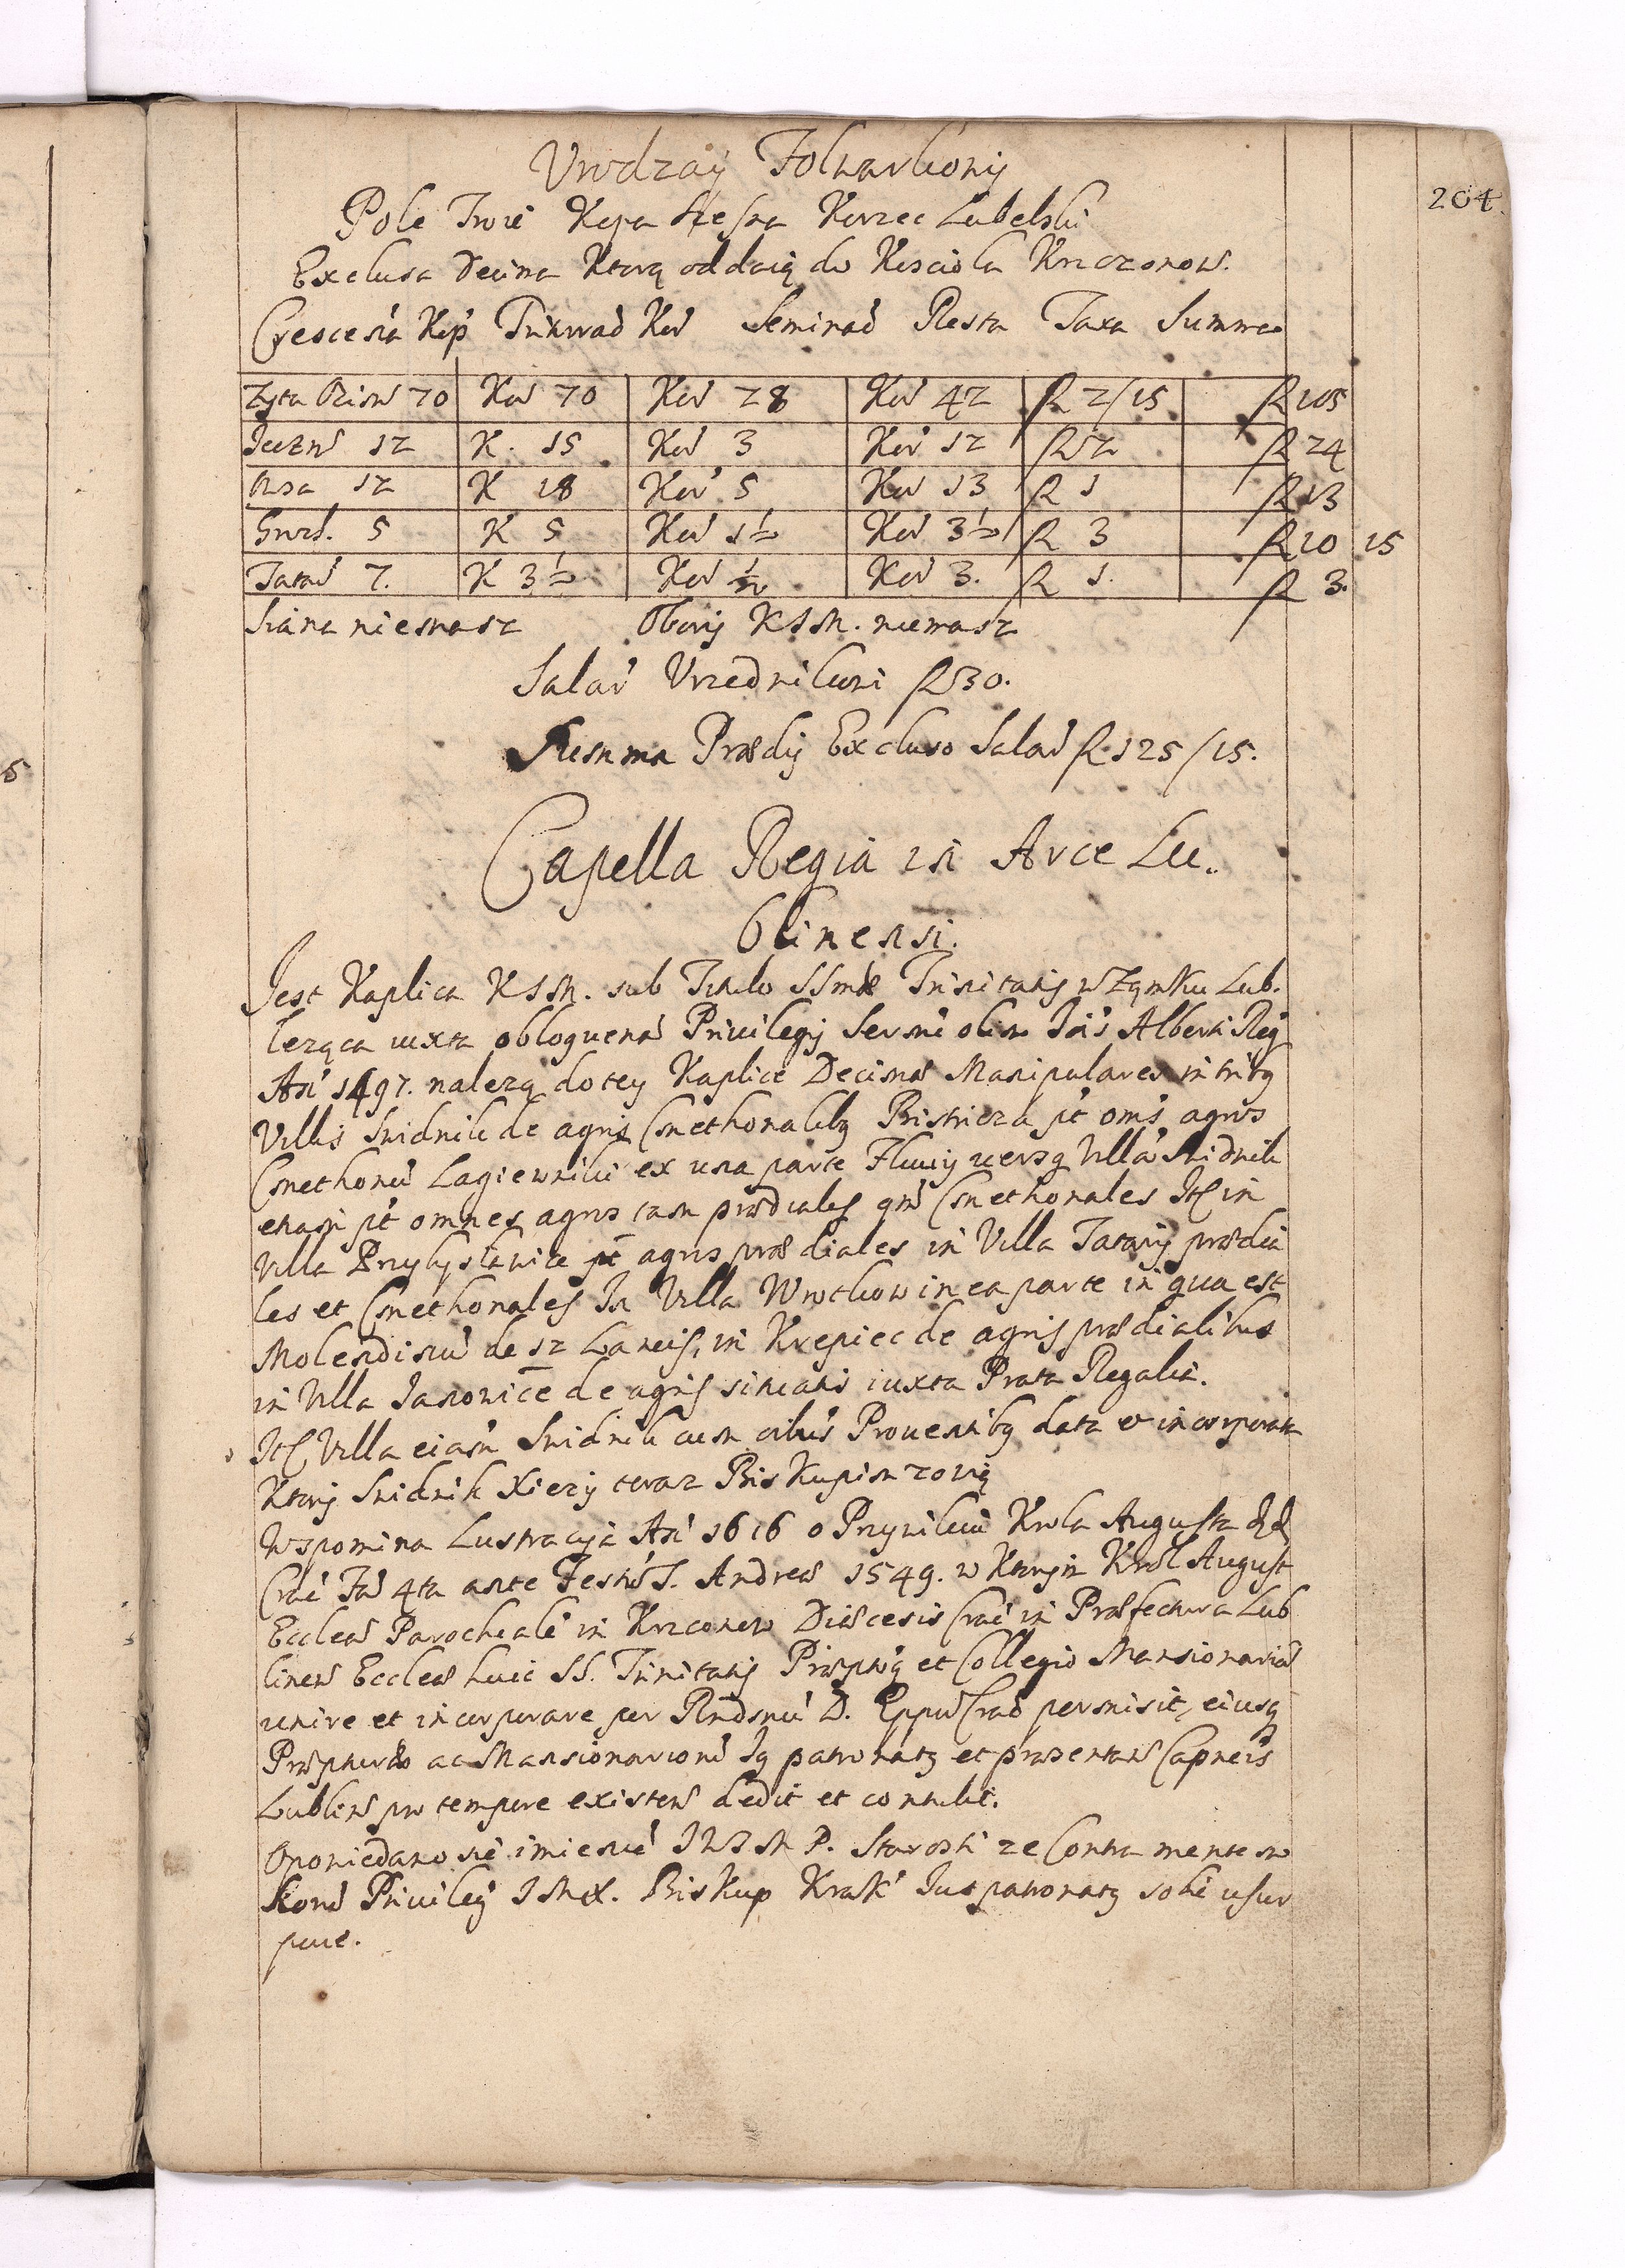 204.
Vrodzaÿ Folwarkowÿ
Pole Troie Kopa Korzec Lubelski
Exclusa Decima Ktorą oddaią do Kosciola Krzczonow.
Crescetia Kop Triturad Kor Seminad Resta Taxa Summa
Zyta Ozim 70 Kor 70 Kor 28 Kor 42 fl 2/15 fl 105
Jeczm 12 K. 15 Kor 3 Kor 12 fl 2 fl 24
Owsa 12 K 18 Kor 5 Kor 13 fl 1 fl 13
Groch. 5 K 5 Kor 1½ Kor 3½ fl 3 fl 10 15
Tatar 7. K 3½ Kor ½ Kor 3. fl 1. fl 3.
Siana niemasz Oborÿ KJM. niemasz
Salar Vrzednikowi fl 30.
Summa Prædÿ Excluso Salar fl 125/15.
Capella Regia in Arce Lu..
blinensi.
Jest Kaplica KJM. sub Titulo SSmæ Trinitatis w Zamku Lub.
leząca iuxta obloquenã Priuilegÿ Sermi olim Jois Alberti Reg
An 1497. nalezą do tey Kaplice Decimæ Manipulares in tribq
Villis Swidnik de agris Cmethonalibq Bistrica pt oms agros
Cmethonu Lagiewniki ex una parte Fluuÿ versq Villa Swidnik
etiam pt omnes agros tam prædiales qm Cmethonales Itē in
Villa Przybyslawice pt agros prædiales in Villa Tatarÿ prædia
les et Cmethonales In Villa Wrotkow in ea parte in qua est
Molendinu de 12 Laneis, in Krepiec de agris prædialibus
in Villa Janowice de agris sitiatis iuxta Prata Regalia.
Itē Villa eiam Swidnik cum oibus Prouentibq data et incorporata
Ktorÿ Swidnik Xiezÿ teraz Biskupim zowią
Wspomina Lustracÿa An 1616 o Przywileiu Krola Augusta
Crac 4ta ante Festu S. Andreæ 1549. w Ktorÿm Krol August
Eccleã Parochiale in Krzconow Diæcesis Crac in Præfectura Lub
linen Eccleæ huic SS. Trinitatis Præptuq et Collegio Mansionariu
unire et incorporare per Rndmu D. Eppu Crac permisit, eiusq
ac Mansionarioru Jq patronatq et præsentan Capneis
Lublin pro tempore existen dedit et contulit.
Opowiedano sie imieniẽ P. Starosti ze Contra mentem
Priuileÿ JMX. Biskup Krak Jus patronatq sobie usur
puie.